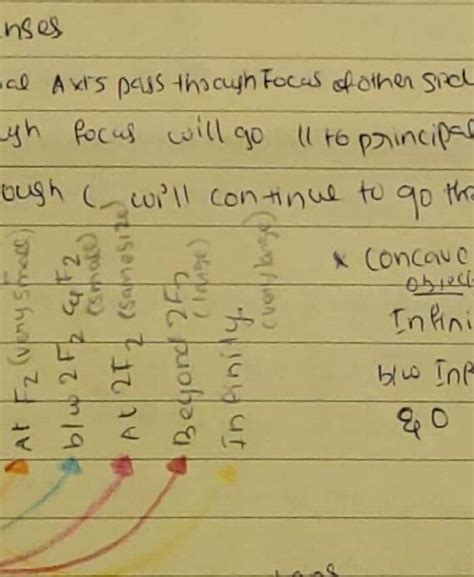 nses
al Axis pass through Focus of other sid
ugh focus will go || to principal
ough C will continue to go th
At F2 (very small)
b/w 2F2 & F2 (small)
At 2F2 (same size)
Beyond 2F2 (large)
Infinity. (very large)
x Concave
object
Infini
b/w Inf
& O
lans